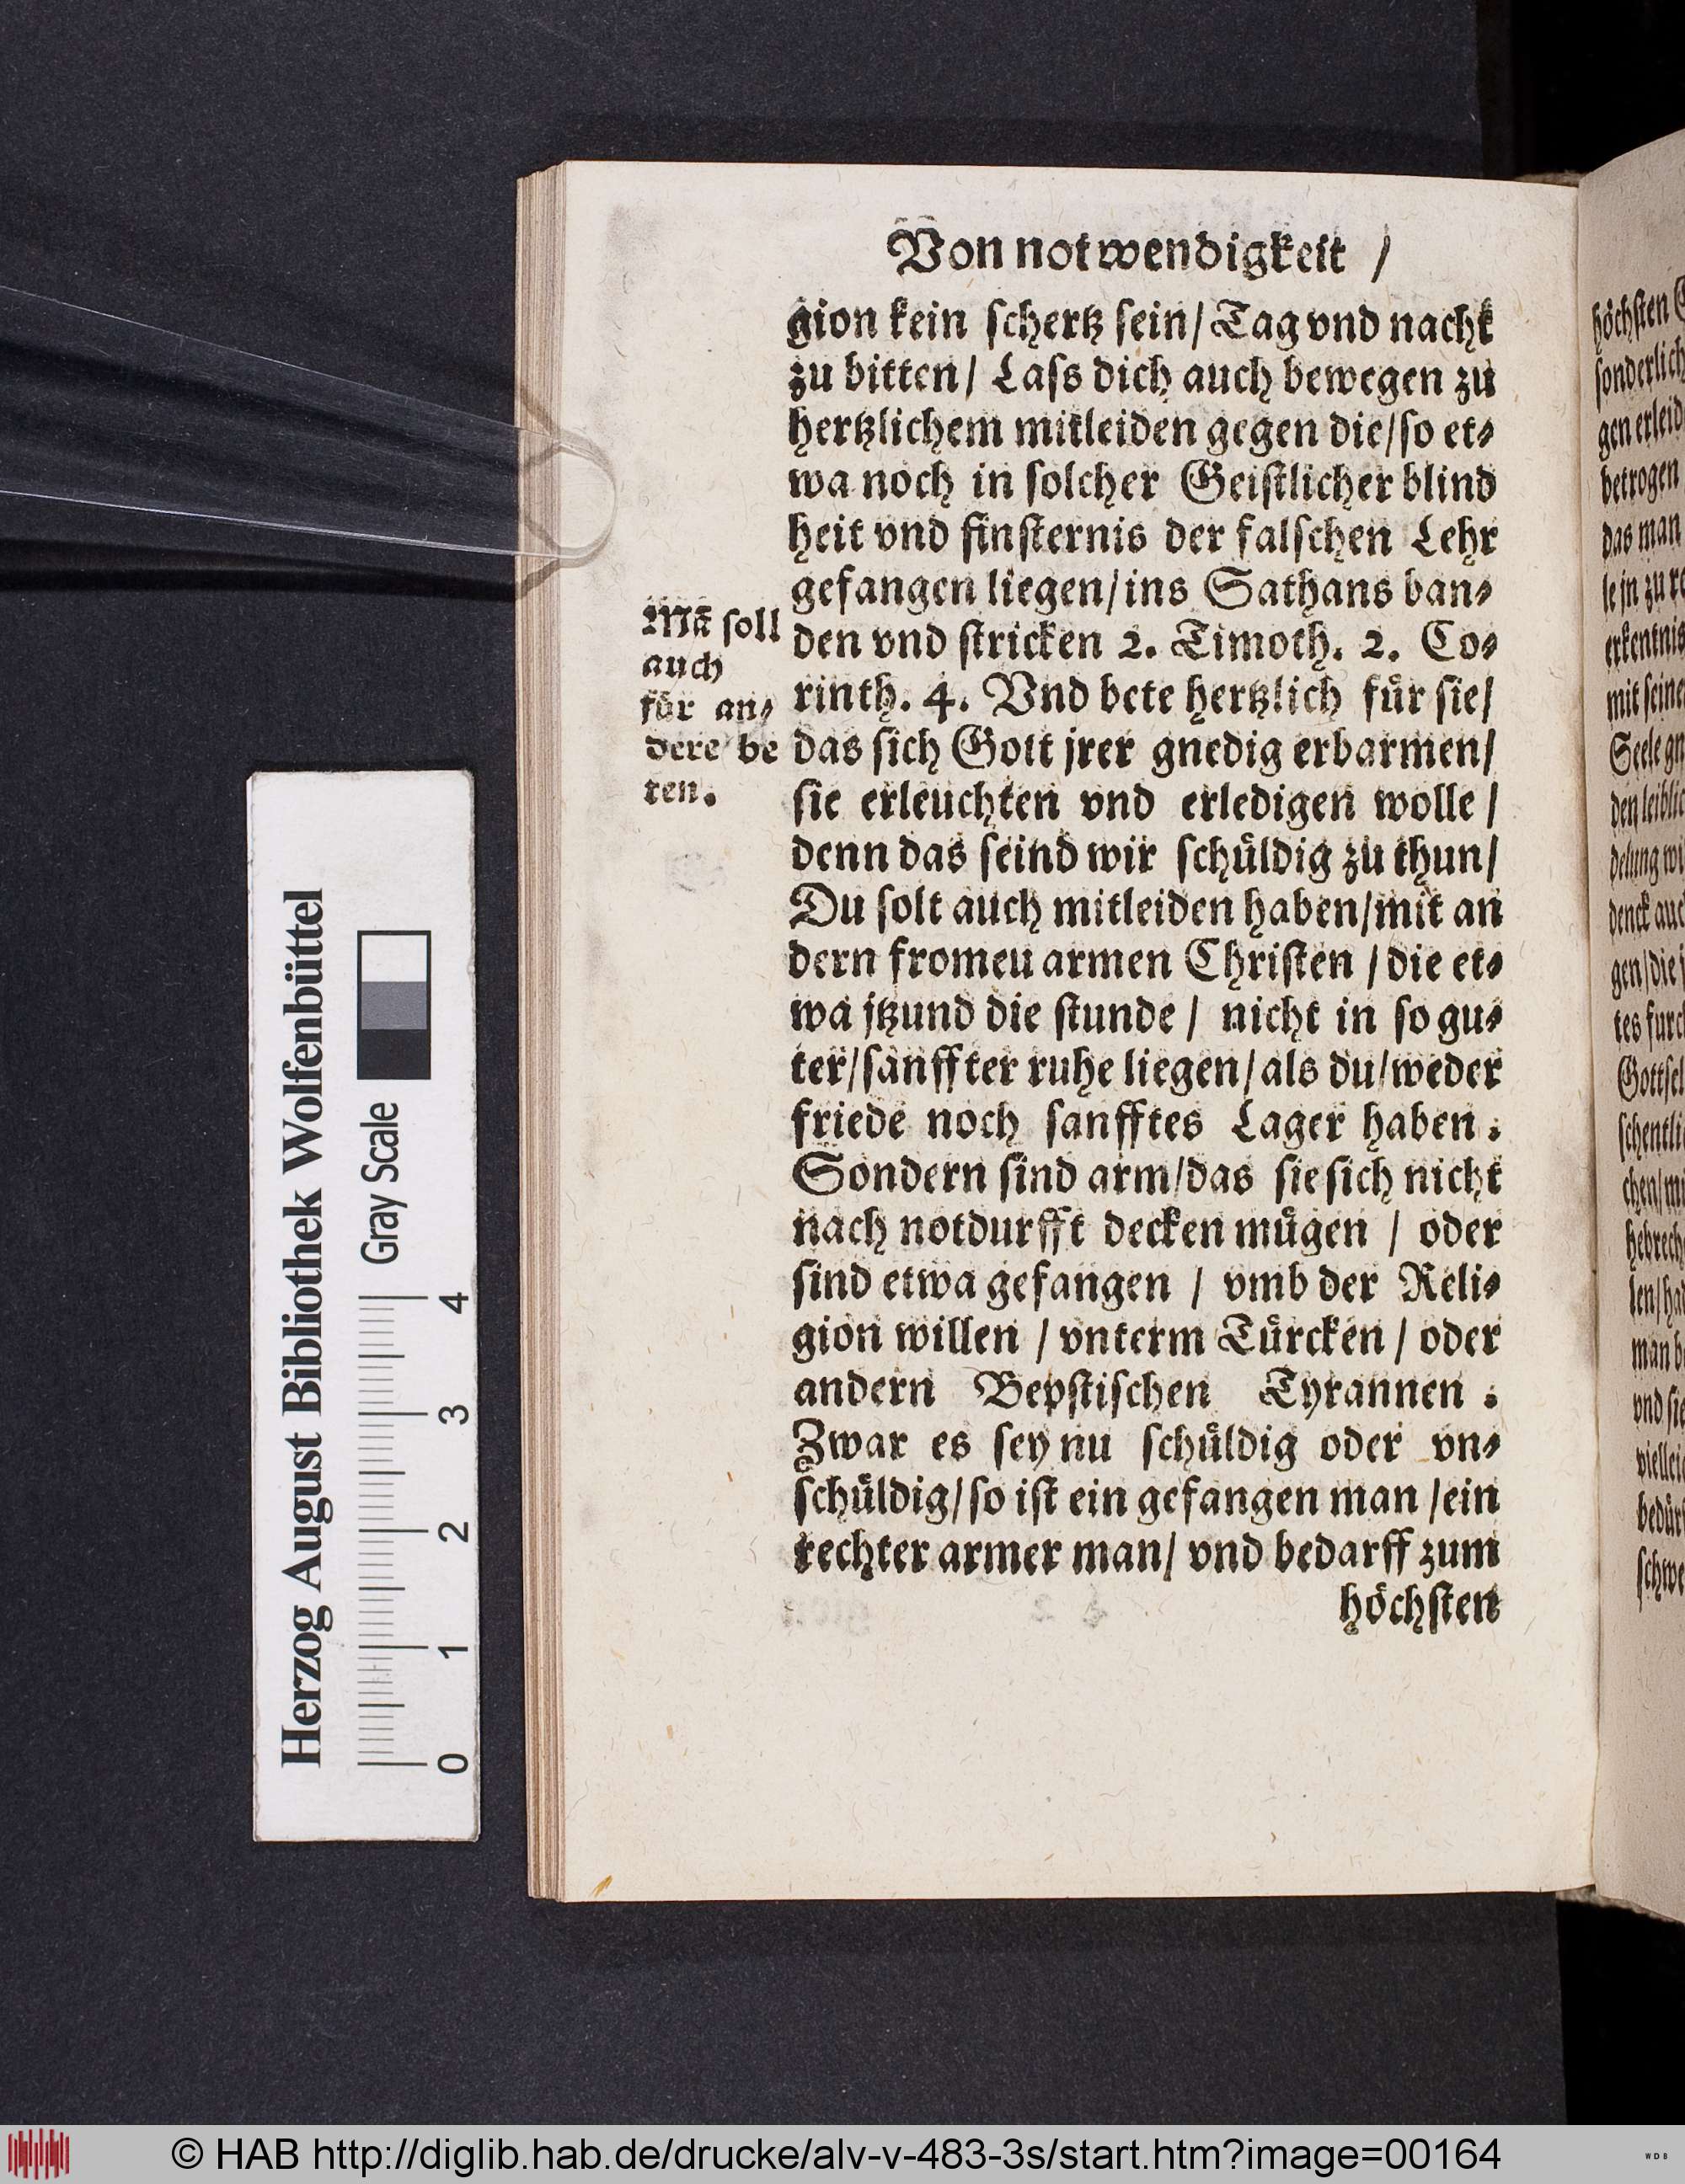 Von notwendigkeit /
gion kein ſchertz ſein/ Tag vnd nacht
zu bitten/ Laſs dich auch bewegen zu
hertzlichem mitleiden gegen die/ſo et⸗
wa noch in ſolcher Geiſtlicher blind
heit vnd finſternis der falſchen Lehr
gefangen liegen/ins Sathans ban⸗
den vnd ſtricken 2. Timoth. 2. Co⸗
rinth. 4. Vnd bete hertzlich fuͤr ſie/
das ſich Gott jrer gnedig erbarmen/
ſie erleuchten vnd erledigen wolle /
denn das ſeind wir ſchuͤldig zu thun/
Du ſolt auch mitleiden haben/mit an
dern fromeu armen Chriſten / die et⸗
wa jtzund die ſtunde / nicht in ſo gu⸗
ter/ſanffter ruhe liegen/als du/weder
friede noch ſanfftes Lager haben.
Sondern ſind arm/das ſie ſich nicht
nach notdurfft decken muͤgen / oder
ſind etwa gefangen / vmb der Reli⸗
gion willen / vnterm Tuͤrcken / oder
andern Bepſtiſchen Tyrannen.
Zwar es ſey nu ſchuͤldig oder vn⸗
ſchuͤldig/ſo iſt ein gefangen man /ein
rechter armer man/ vnd bedarff zum
hoͤchſten
Mā ſoll
auch
fuͤr an⸗
dere be
ten.
hoͤchſten
ſonderlich
gen erleid
betrogen
das man
erkentnis
Gottſel
Herzog August Bibliothek Wolfenbüttel
Gray Scale
0 1 2 3 4
© HAB http://diglib.hab.de/drucke/alv-v-483-3s/start.htm?image=00164
WDB